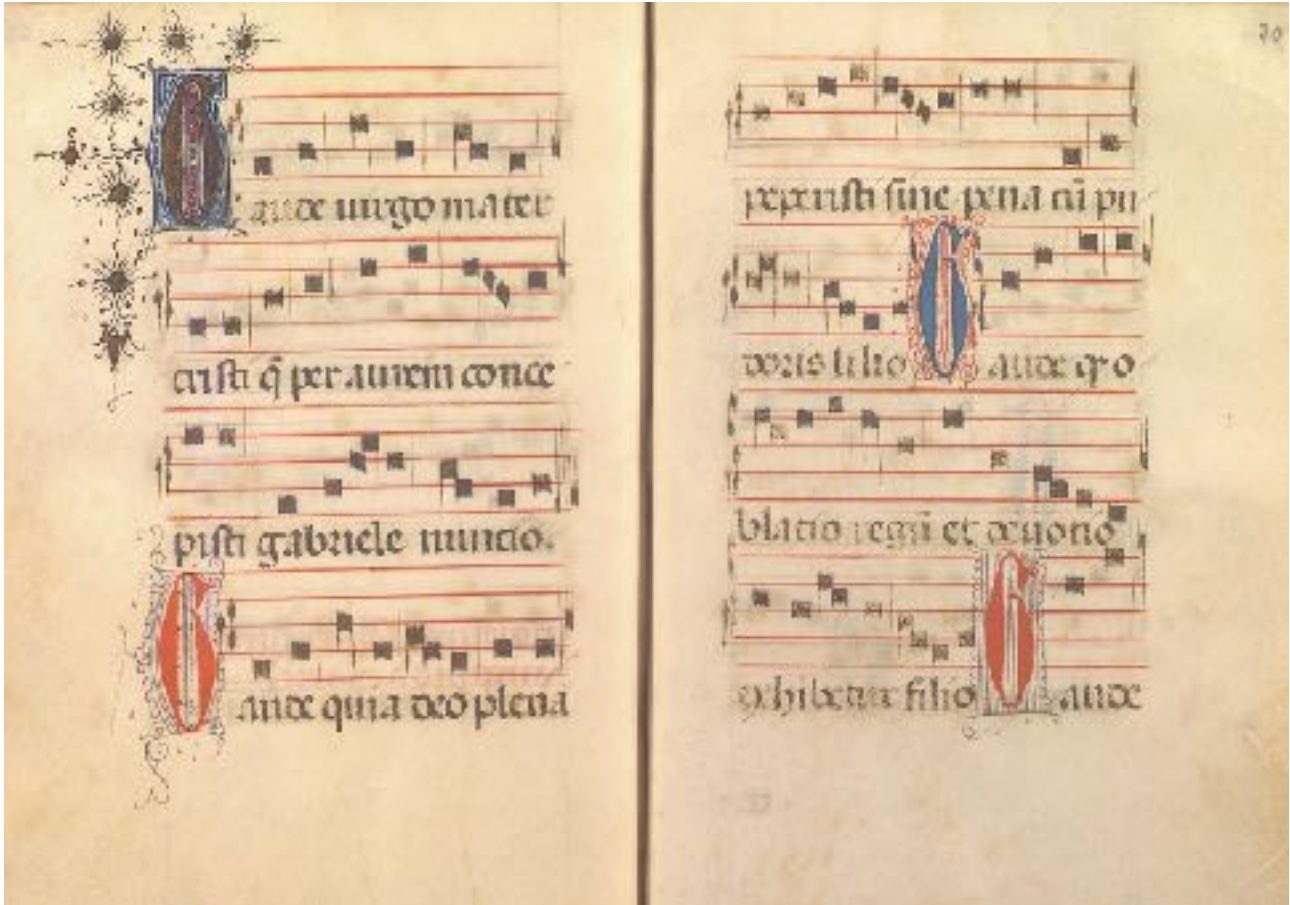 Gaude uirgo mater
cristi q̄ per aurem conce
pisti gabriele nuncio.
Gaude quia deo plena
70
peperisti sine pena cū pu
doris lilio Gaude qr o
blatio regū et deuotio
exhibetur filio Gaude